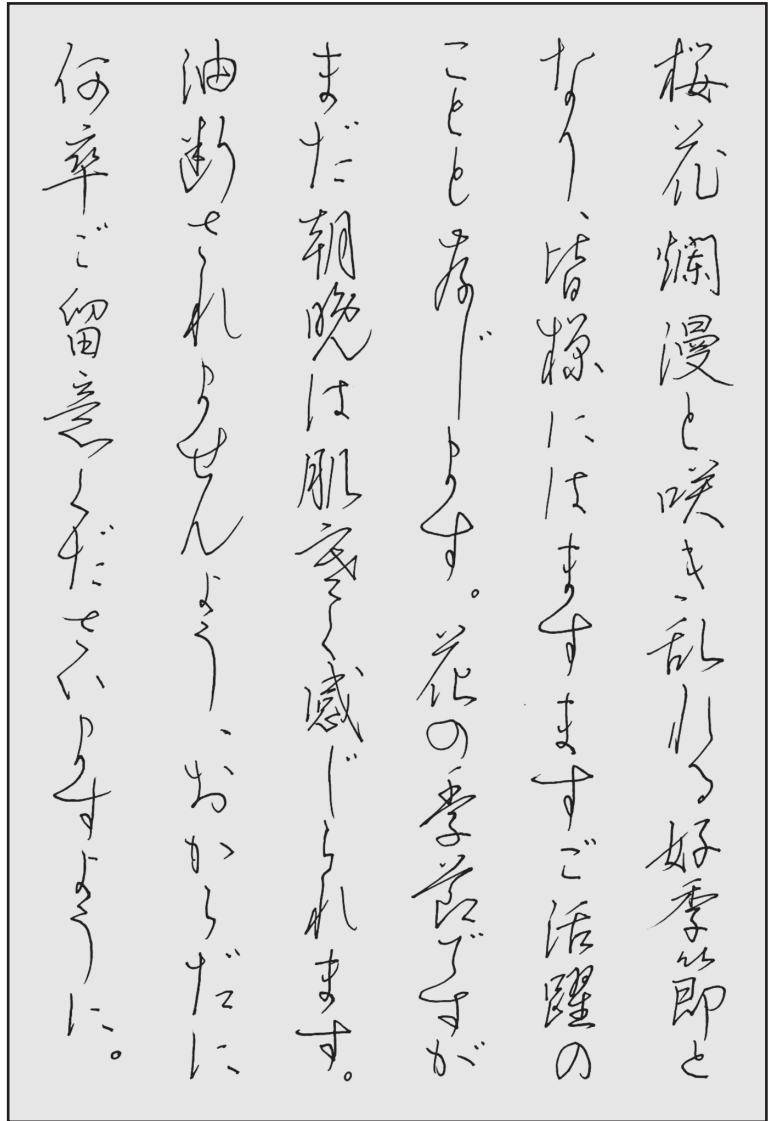 桜花爛漫と咲き乱れる好季節と
なり、皆様にはますますご活躍の
ことと存じます。花の季節ですが
まだ朝晩は肌寒く感じられます。
油断されませんよう、おからだに
何卒ご留意くださいますように。